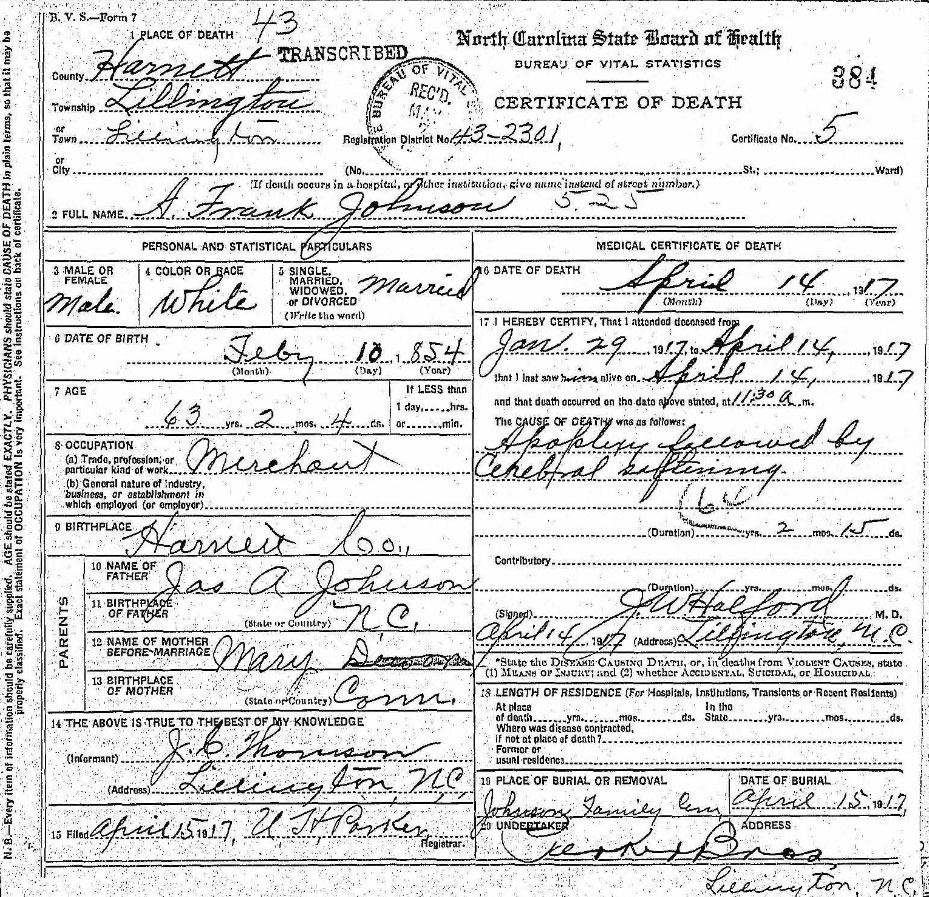 B. V. S.—Form 7
43
1 PLACE OF DEATH
TRANSCRIBED
North Carolina State Board of Health
BUREAU OF VITAL STATISTICS
CERTIFICATE OF DEATH
384
County Harnett
Township Lillington
or
Town Lillington
BUREAU OF VITAL
REC'D.
Registration District No. 43-2301,
Certificate No. 5
or
City
(No. St.; Ward)
(If death occurs in a hospital, or other institution, give name instead of street number.)
2 FULL NAME A. Frank Johnson 5.25
PERSONAL AND STATISTICAL PARTICULARS
3 MALE OR FEMALE
Male
4 COLOR OR RACE
White
5 SINGLE, MARRIED, WIDOWED, or DIVORCED
(Write the word)
Married
6 DATE OF BIRTH
Feby 10, 854
(Month) (Day) (Year)
7 AGE
If LESS than
1 day,.....hrs.
or.....min.
63 yrs. 2 mos. 4 ds.
8 OCCUPATION
(a) Trade, profession, or
particular kind of work Merchant
(b) General nature of industry,
business, or establishment in
which employed (or employer)
9 BIRTHPLACE
Harnett Co.,
PARENTS
10 NAME OF FATHER
Jas A Johnson
11 BIRTHPLACE OF FATHER
(State or Country) N.C.
12 NAME OF MOTHER BEFORE MARRIAGE
Mary
13 BIRTHPLACE OF MOTHER
(State or Country) Conn.
14 THE ABOVE IS TRUE TO THE BEST OF MY KNOWLEDGE
(Informant) J. C. Thomson
(Address) Lillington, N.C.
15 Filed April 15 1917, U H Parker
Registrar.
MEDICAL CERTIFICATE OF DEATH
16 DATE OF DEATH
April 14 1917
(Month) (Day) (Year)
17 I HEREBY CERTIFY, That I attended deceased from
Jan. 29 1917 to April 14, 1917
that I last saw him alive on April 14, 1917
and that death occurred on the date above stated, at 11:30 a.m.
The CAUSE OF DEATH* was as follows:
Apoplexy followed by
Cerebral softening
(64
(Duration) yrs. 2 mos. 15 ds.
Contributory
(Duration) yrs. mos. ds.
(Signed) J W Halford M. D.
April 14 1917 (Address) Lillington, N.C.
*State the DISEASE CAUSING DEATH, or, in deaths from VIOLENT CAUSES, state
(1) MEANS OF INJURY; and (2) whether ACCIDENTAL, SUICIDAL, OR HOMICIDAL.
18 LENGTH OF RESIDENCE (For Hospitals, Institutions, Transients or Recent Residents)
At place of death yrs. mos. ds. In the State yrs. mos. ds.
Where was disease contracted,
if not at place of death?
Former or
usual residence
19 PLACE OF BURIAL OR REMOVAL
Johnson Family Cem
DATE OF BURIAL
April 15 1917,
20 UNDERTAKER
Bros,
ADDRESS
Lillington, N.C.
N. B.—Every item of information should be carefully supplied. AGE should be stated EXACTLY. PHYSICIANS should state CAUSE OF DEATH in plain terms, so that it may be
properly classified. Exact statement of OCCUPATION is very important. See instructions on back of certificate.